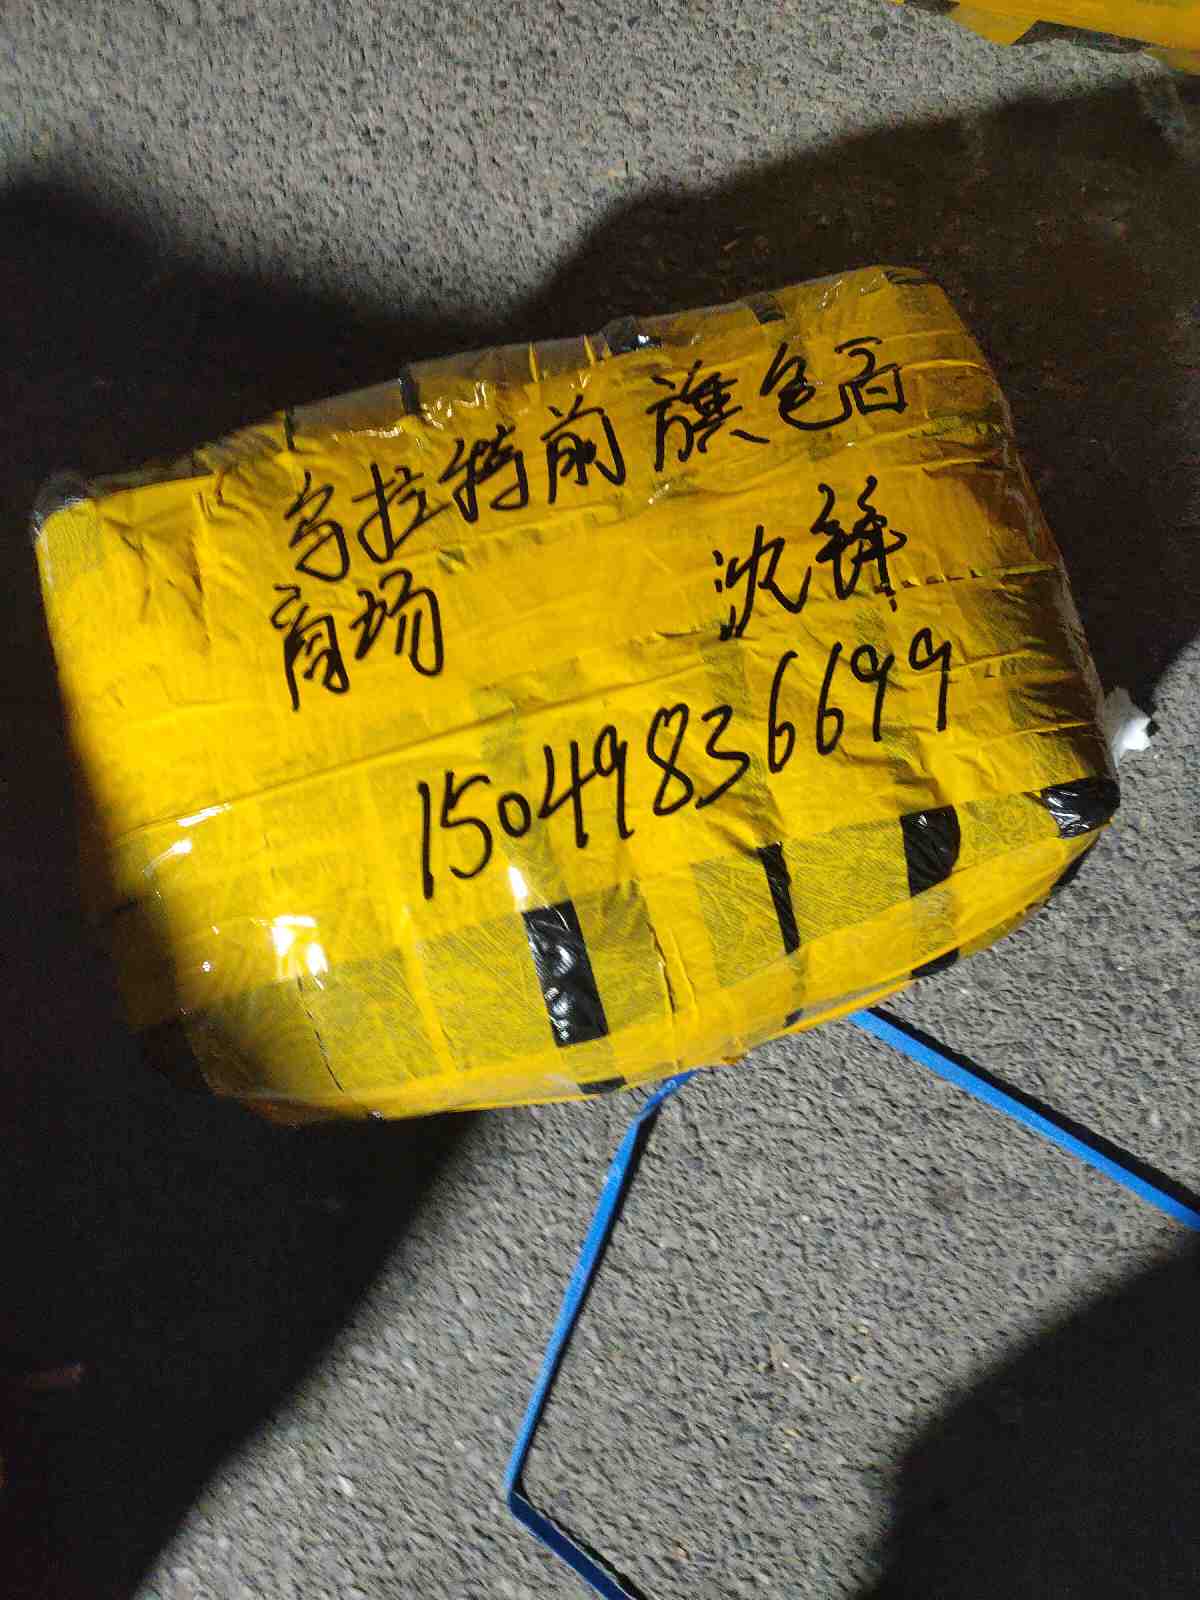 乌拉特前旗包百
商场
沈锋
15049836699